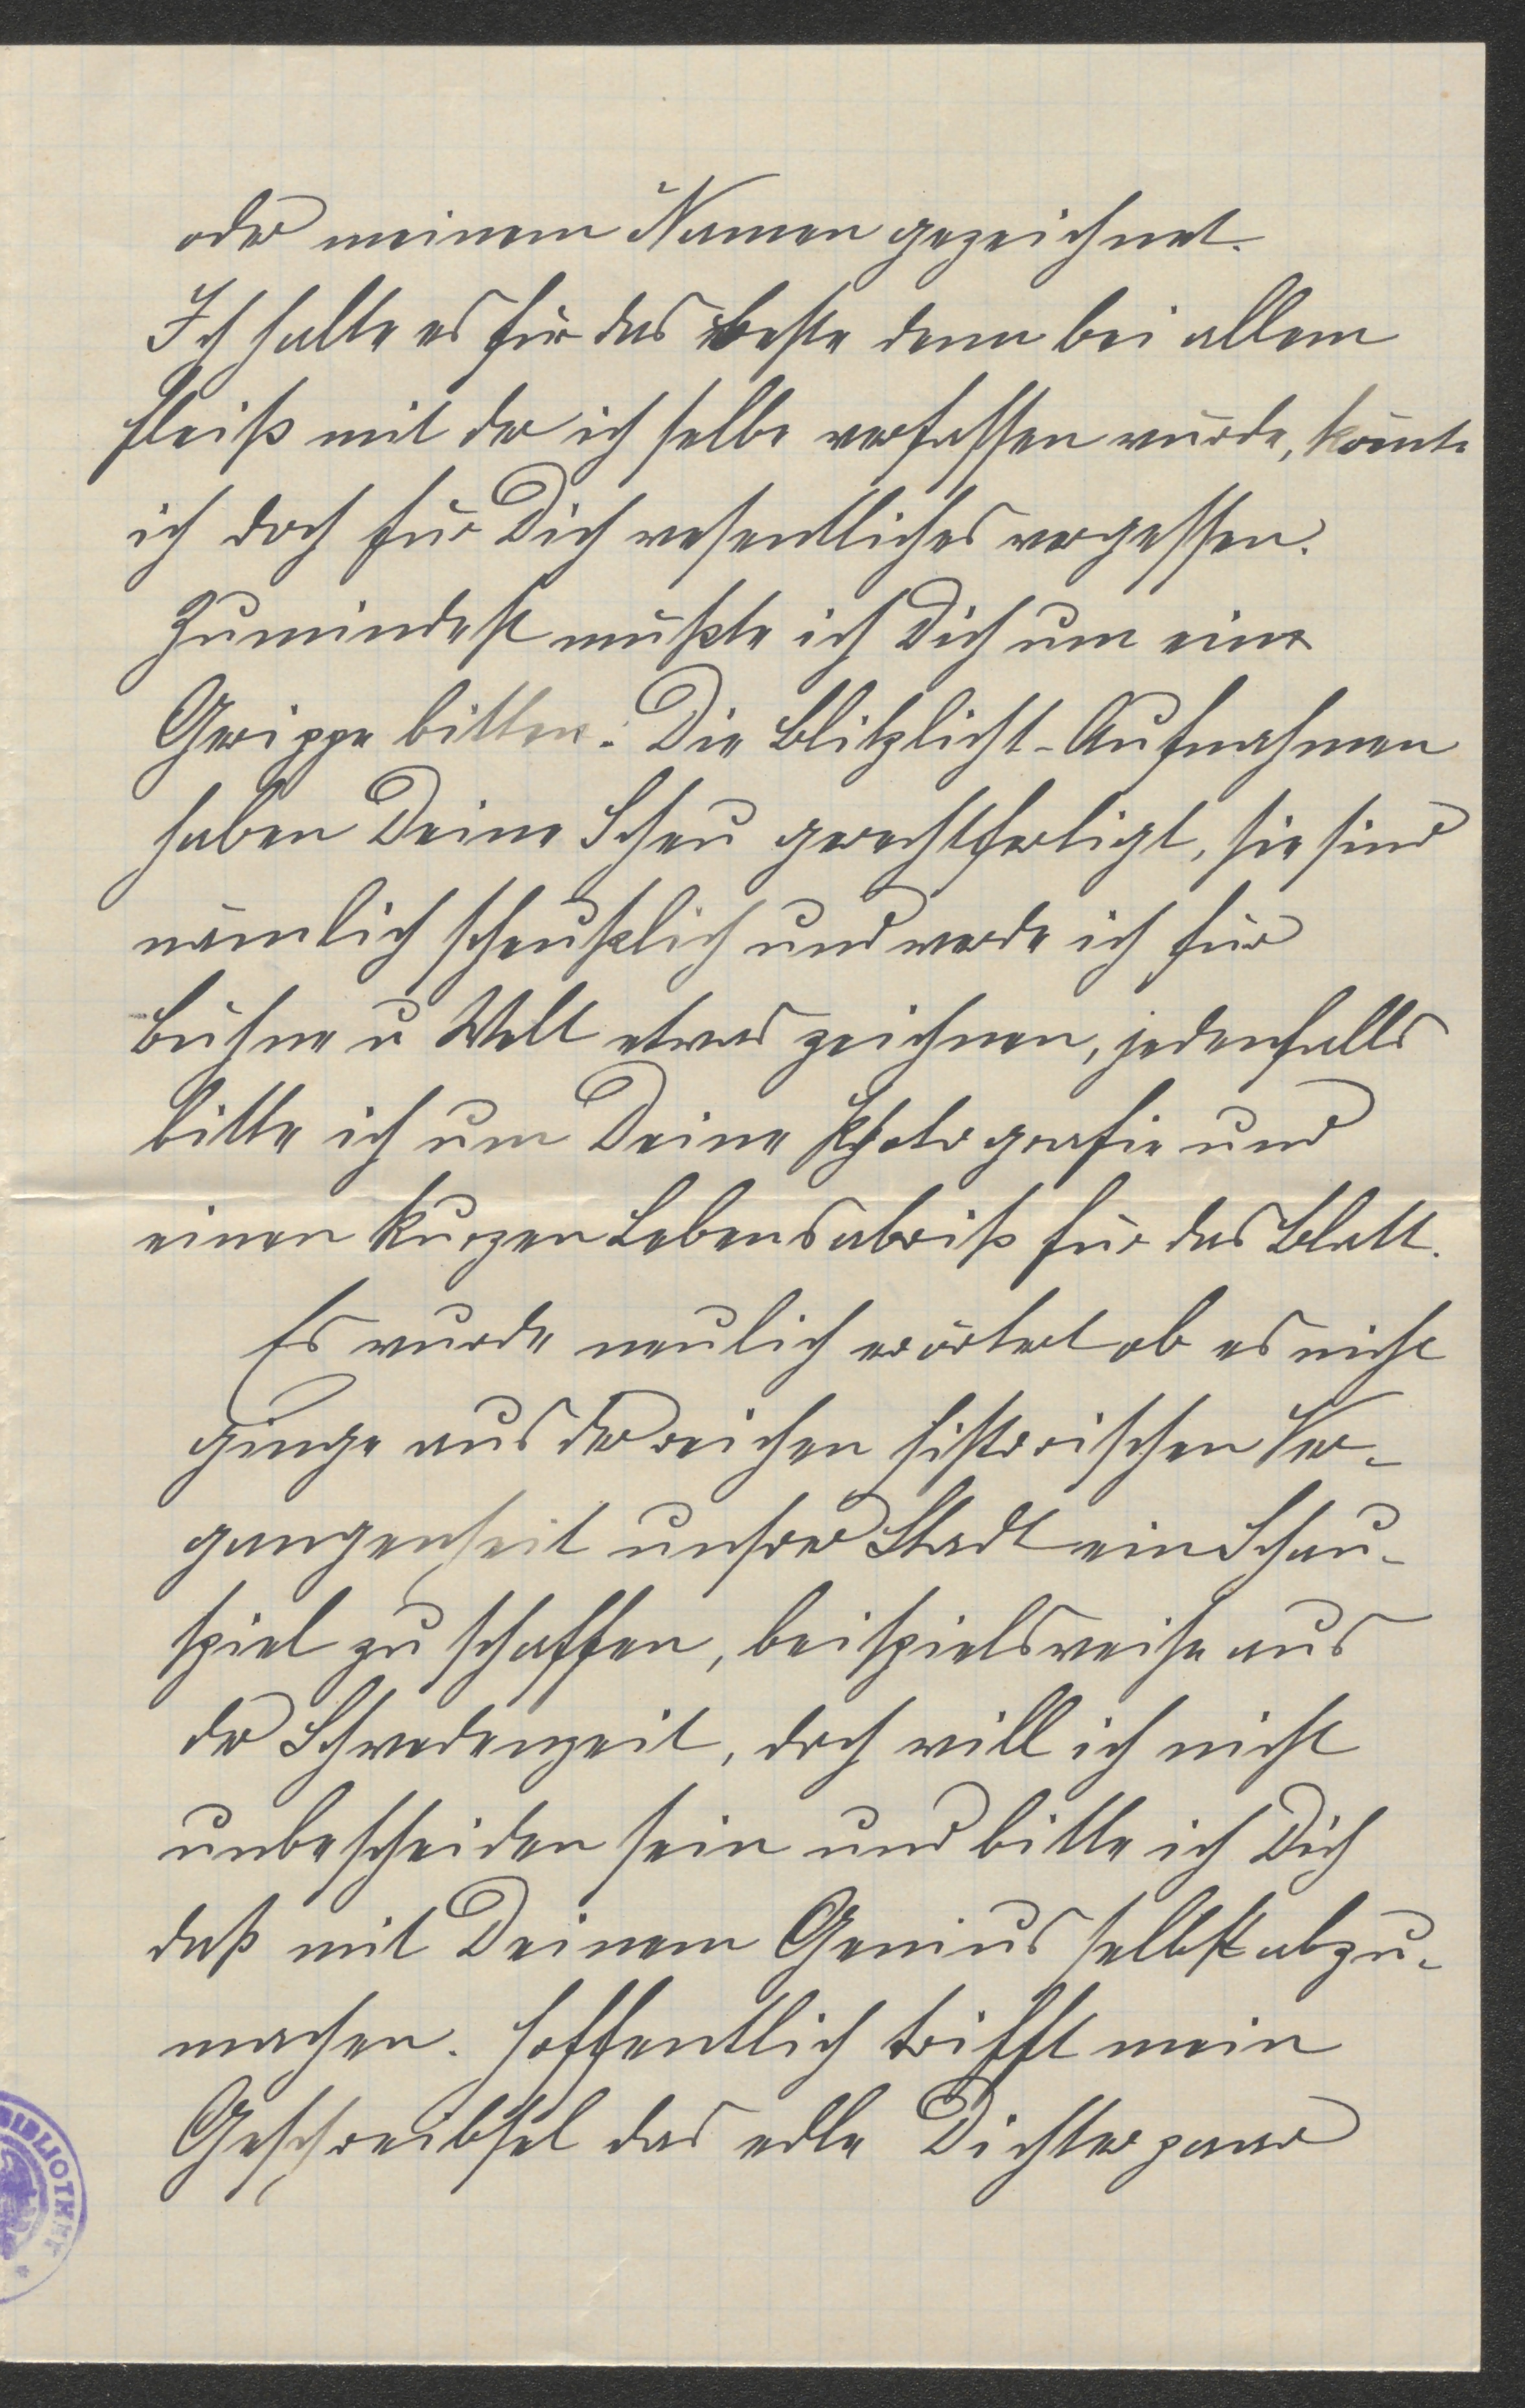 oder meinem Namen gezeichnet.
Ich halte es für das beste denn bei allem
Fleiß mit der ich selbe verfassen würde, könnte
ich doch für Dich wesentliches vergessen.
Zumindest müßte ich Dich um eine
Grippe bitten. Die Blitzlicht-Aufnahmen
haben Deine Scheu gerechtfertigt, sie sind
nämlich scheußlich und werde ich für
Bühne u Welt etwas zeichnen, jedenfalls
bitte ich um Deine Photografie und
einen kurzen Lebensabriß für das Blatt.
Es wurde neulich erörtert ob es nicht
ginge aus der reichen historischen Ver-
gangenheit unsrer Stadt ein Schau-
spiel zu schaffen, beispielsweise aus
der Schwedenzeit, doch will ich nicht
unbescheiden sein und bitte ich Dich
daß mit Deinem Genius selbst abzu-
machen. Hoffentlich trifft mein
Geschreibsel das edle Dichterpaar
BIBLIOTHEK